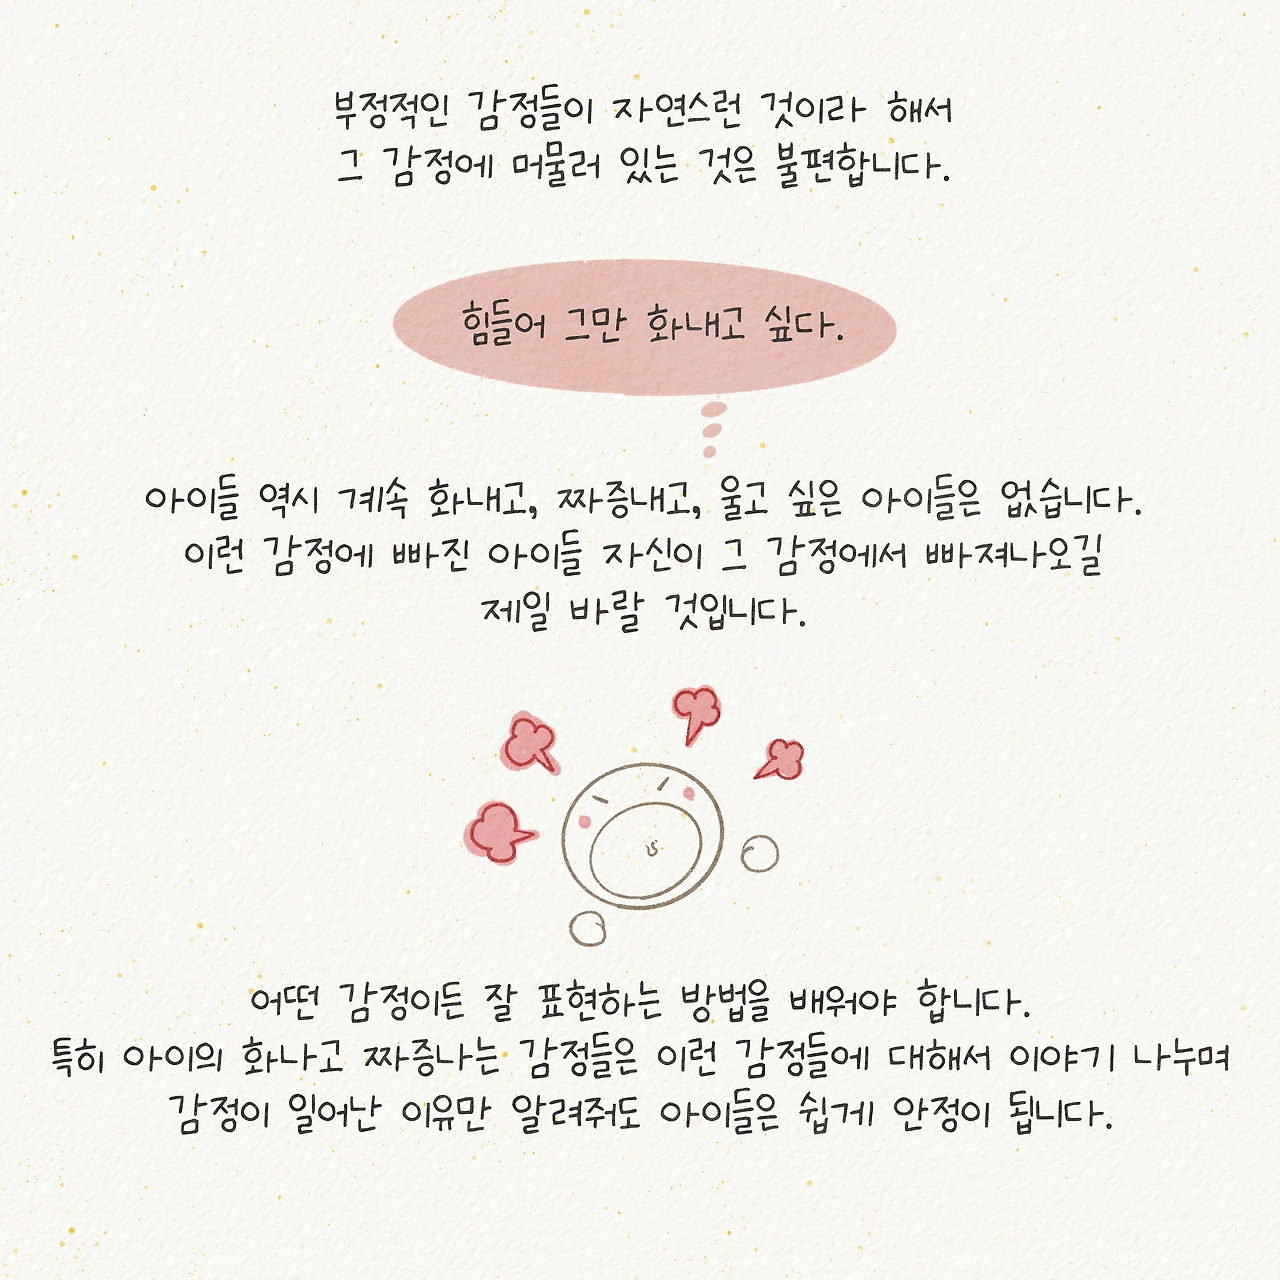 부정적인 감정들이 자연스런 것이라 해서
그 감정에 머물러 있는 것은 불편합니다.
힘들어 그만 화내고 싶다.
아이들 역시 계속 화내고, 짜증내고, 울고 싶은 아이들은 없습니다.
이런 감정에 빠진 아이들 자신이 그 감정에서 빠져나오길
제일 바랄 것입니다.
어떤 감정이든 잘 표현하는 방법을 배워야 합니다.
특히 아이의 화나고 짜증나는 감정들은 이런 감정들에 대해서 이야기 나누며
감정이 일어난 이유만 알려줘도 아이들은 쉽게 안정이 됩니다.